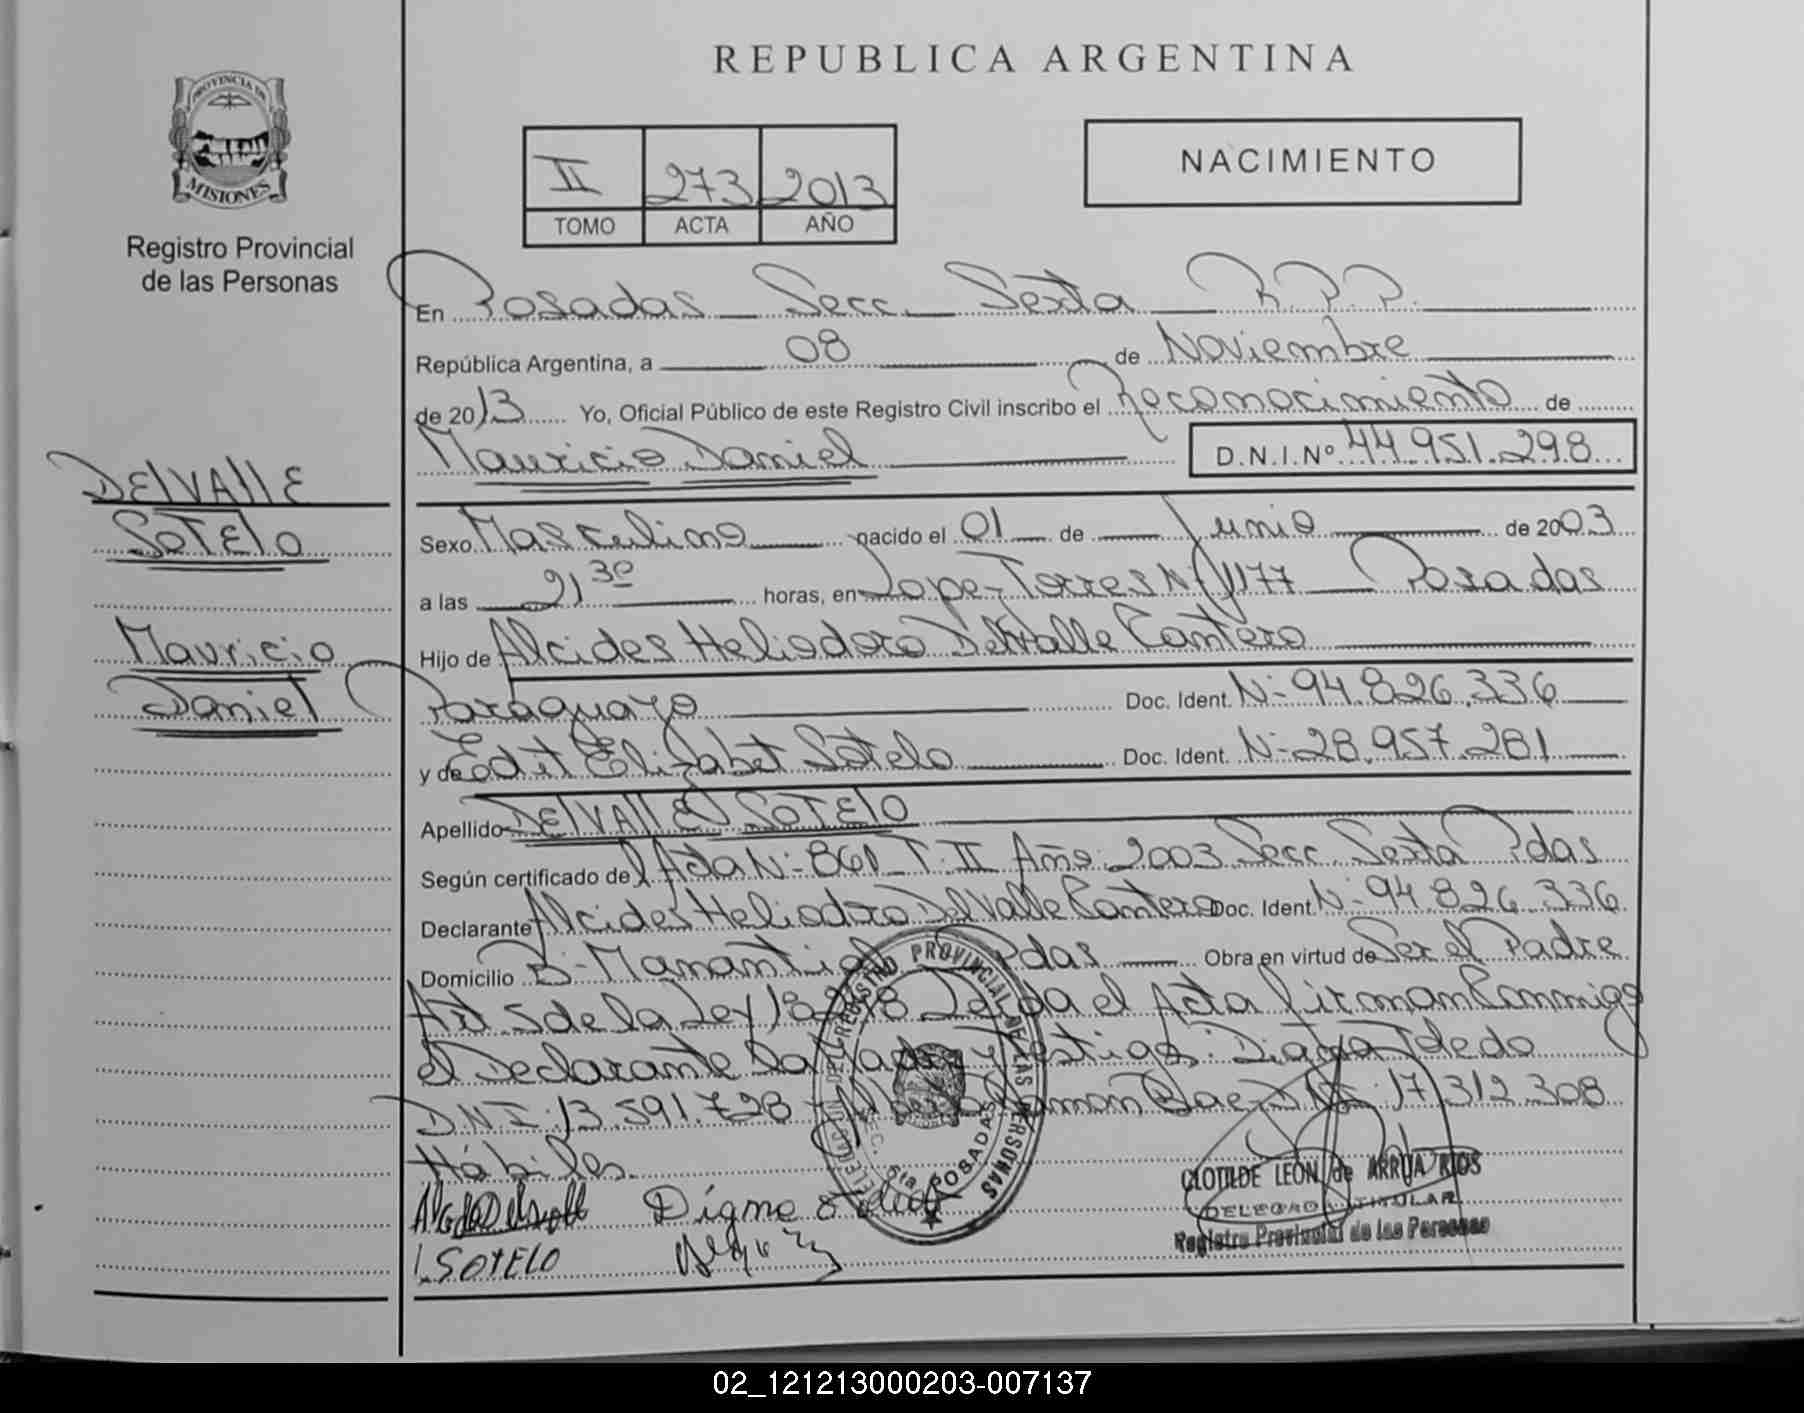 REPUBLICA ARGENTINA
PROVINCIA DE
MISIONES
Registro Provincial
de las Personas
II 273 2013
TOMO ACTA AÑO
NACIMIENTO
En Posadas Secc. Sexta R.P.P.
República Argentina, a 08 de Noviembre
de 2013 Yo, Oficial Público de este Registro Civil inscribo el Reconocimiento de
Mauricio Daniel D.N.I.Nº 44.951.298
DELVALLE
SOTELO
Mauricio
Daniel
Sexo Masculino nacido el 01 de Junio de 2003
a las 21 30 horas, en Lope Torres Nº 1177 Posadas
Hijo de Alcides Heliodoro Delvalle Cantero
Paraguayo Doc. Ident. Nº 94.826.336
y de Edit Elizabet Sotelo Doc. Ident. Nº 28.957.281
Apellido DELVALLE SOTELO
Según certificado del Acta Nº 861 T. II Año: 2003 Secc. Sexta Pdas
Declarante Alcides Heliodoro Delvalle Cantero Doc. Ident. Nº 94.826.336
Domicilio Bº Manantial Pdas Obra en virtud de Ser el Padre
Art 5 de la Ley 18.248 Leida el Acta firman Conmigo
el Declarante La Madre y Testigos: Toledo
DNI: 13.591.728 Ramon Baez 17.312.308
Hábiles.
REGISTRO PROVINCIAL DE LAS PERSONAS
DELEGACION
SEC. 6ta POSADAS
SOTELO
CLOTILDE LEON de ARRUA RIOS
DELEGADA TITULAR
Registro Provincial de las Personas
02_121213000203-007137